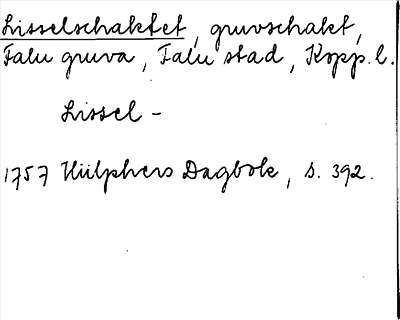 Lisselschaktet, gruvschakt,
Falu gruva, Falu stad, Kopp. l.
Lissel -
1757 Hülphers Dagbok, s. 392.